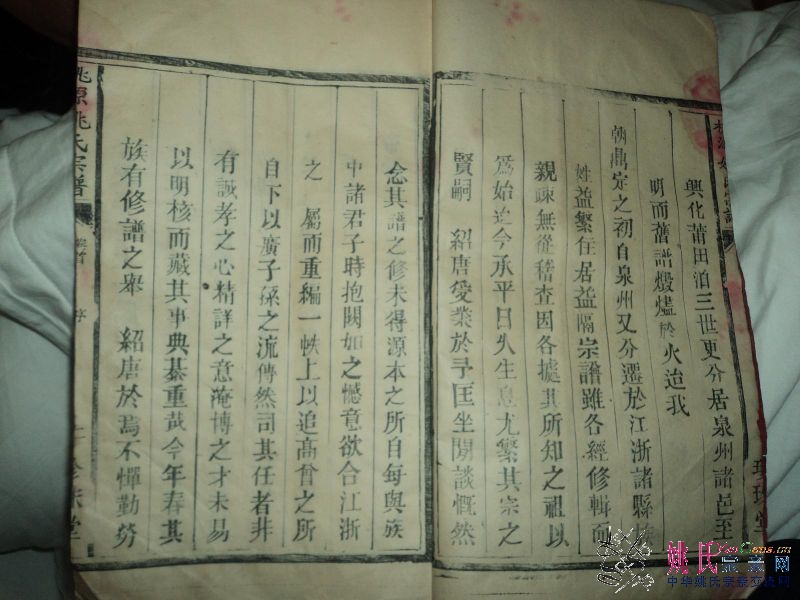 興化莆田泊三世更分居泉州諸邑至
明而舊譜燬燼於火迨我
朝鼎定之初自泉州又分遷於江浙諸縣
姓益繁住居益隔宗譜雖各經修輯而
親疎無從稽查因各據其所知之祖以
爲始迄今承平日久生息尤繁其宗之
賢嗣 紹唐受業於予匡坐閒談慨然
念其譜之修未得源本之所自每與族
中諸君子時抱闕如之憾意欲合江浙
之 屬而重編一帙上以追高曾之所
自下以廣子孫之流傳然司其任者非
有誠孝之心精詳之意淹博之才未易
以明核而藏其事典綦重哉今年春其
族有修譜之舉 紹唐於焉不憚勤勞
姚氏宗譜
序
珍珠堂
姚氏宗亲网
中华姚氏宗亲交流网